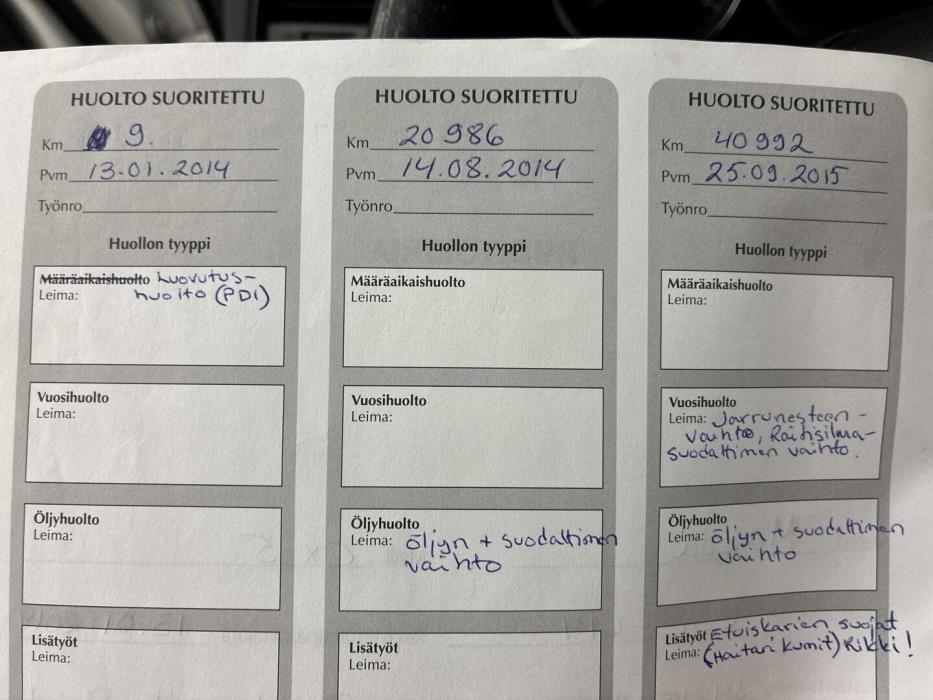 HUOLTO SUORITETTU
Km 9.
Pvm 13.01.2014
Työnro
Huollon tyyppi
Määräaikaishuolto Luovutus-
Leima: huolto (PDI)
Vuosihuolto
Leima:
Öljyhuolto
Leima:
Lisätyöt
Leima:
HUOLTO SUORITETTU
Km 20 986
Pvm 14.08.2014
Työnro
Huollon tyyppi
Määräaikaishuolto
Leima:
Vuosihuolto
Leima:
Öljyhuolto
Leima: öljyn + suodattimen
vaihto
Lisätyöt
Leima:
HUOLTO SUORITETTU
Km 40 992
Pvm 25.09.2015
Työnro
Huollon tyyppi
Määräaikaishuolto
Leima:
Vuosihuolto
Leima: Jarrunesteen-
vaihto, Raitisilma-
suodattimen vaihto.
Öljyhuolto
Leima: öljyn + suodattimen
vaihto
Lisätyöt Etuiskarien suojat
Leima: (Haitari kumit) Rikki!